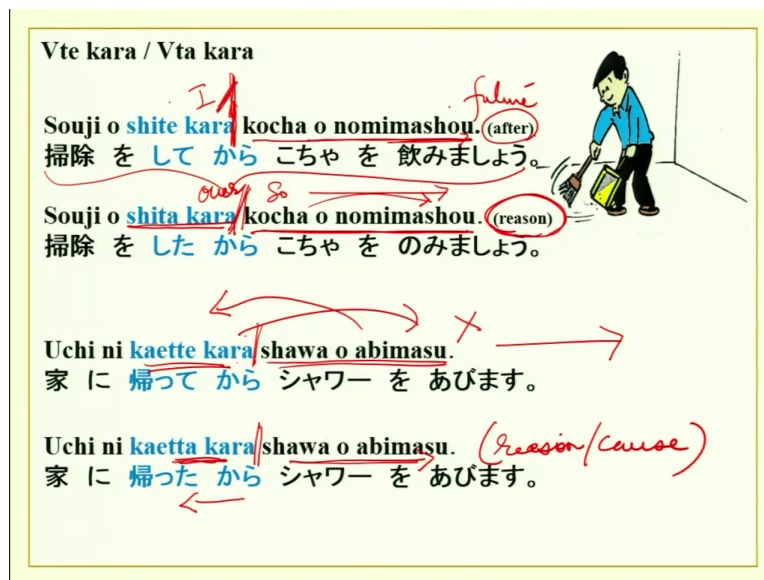 Vte kara / Vta kara
I
future
Souji o shite kara kocha o nomimashou. (after)
掃除 を して から こちゃ を 飲みましょう。
over so
Souji o shita kara kocha o nomimashou. (reason)
掃除 を した から こちゃ を のみましょう。
Uchi ni kaette kara shawa o abimasu.
家 に 帰って から シャワー を あびます。
Uchi ni kaetta kara shawa o abimasu. (reason/cause)
家 に 帰った から シャワー を あびます。